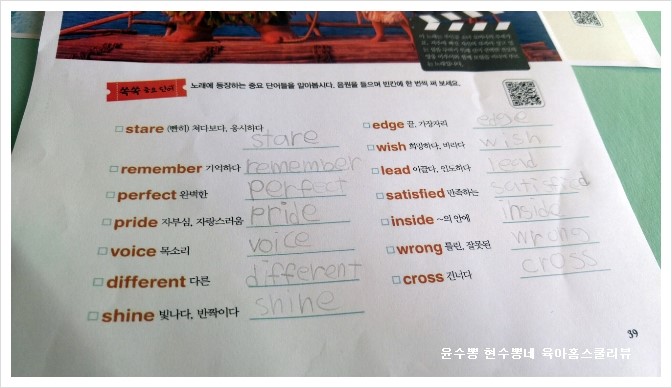 쏙쏙 중요 단어
노래에 등장하는 중요 단어들을 알아봅시다. 음원을 들으며 빈칸에 한 번씩 써 보세요.
stare (빤히) 쳐다보다, 응시하다 stare
remember 기억하다 remember
perfect 완벽한 perfect
pride 자부심, 자랑스러움 pride
voice 목소리 voice
different 다른 different
shine 빛나다, 반짝이다 shine
edge 끝, 가장자리 edge
wish 희망하다, 바라다 wish
lead 이끌다, 인도하다 lead
satisfied 만족하는 satisfied
inside ~의 안에 inside
wrong 틀린, 잘못된 wrong
cross 건너다 cross
39
윤수뽕 현수뽕네 육아홈스쿨리뷰